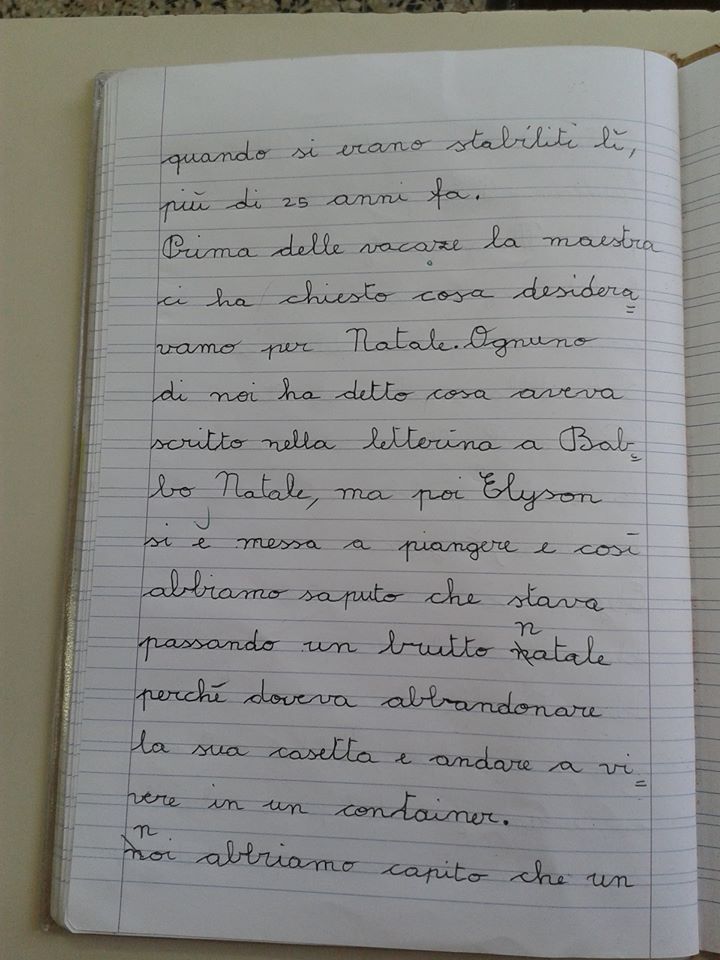 quando si erano stabiliti lì,
più di 25 anni fa.
Prima delle vacaze la maestra
ci ha chiesto cosa desidera=
vamo per Natale. Ognuno
di noi ha detto cosa aveva
scritto nella letterina a Bab=
bo Natale, ma poi Elyson
si è messa a piangere e così
abbiamo saputo che stava
passando un brutto natale
perché doveva abbandonare
la sua casetta e andare a vi=
vere in un container.
noi abbiamo capito che un